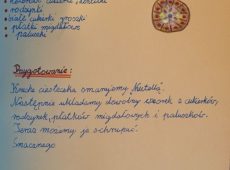 kolorowe cukierki, kostki
rodzynki
małe cukierki groszki
płatki migdałowe
paluszki
Przygotowanie:
Kruche ciasteczka smarujemy "Nutellą".
Następnie układamy dowolny wzorek z cukierków,
rodzynek, płatków migdałowych i paluszków.
Teraz możemy je schrupać.
Smacznego